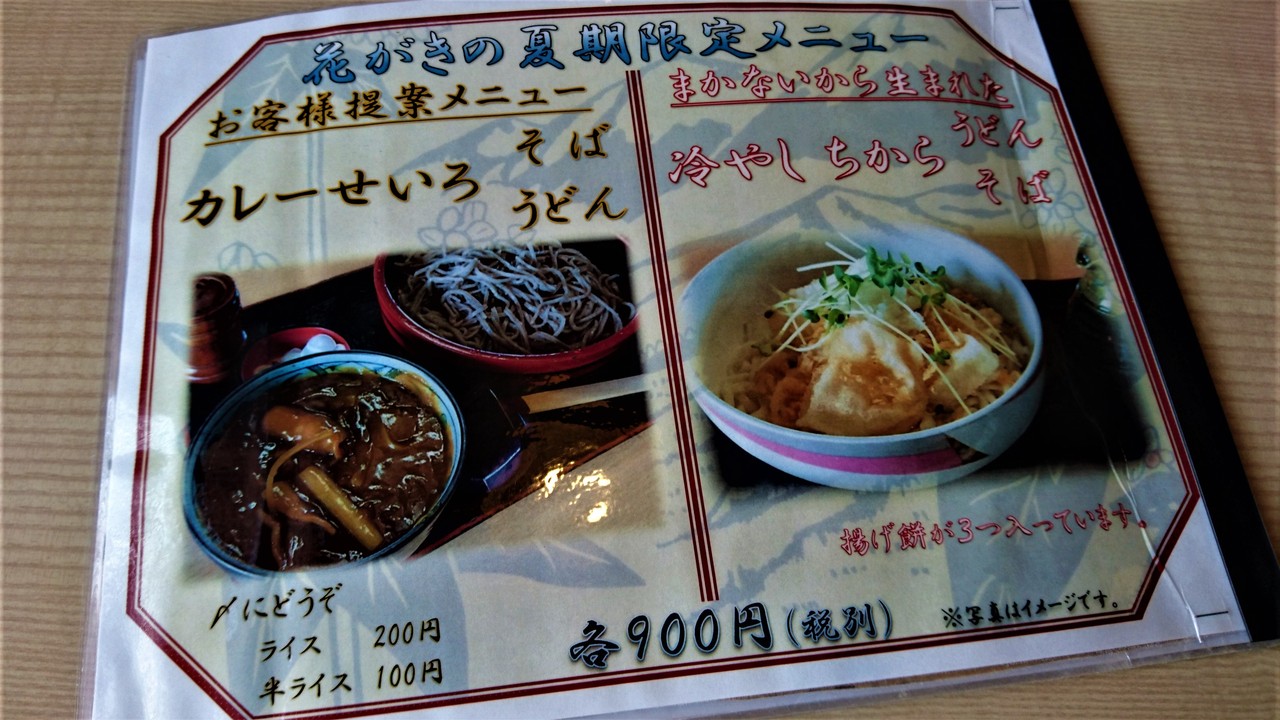 花がきの夏期限定メニュー
お客様提案メニュー
カレーせいろ
そば
うどん
まかないから生まれた
冷やしちから
うどん
そば
揚げ餅が3つ入っています。
〆にどうぞ
ライス 200円
半ライス 100円
各900円(税別)
※写真はイメージです。